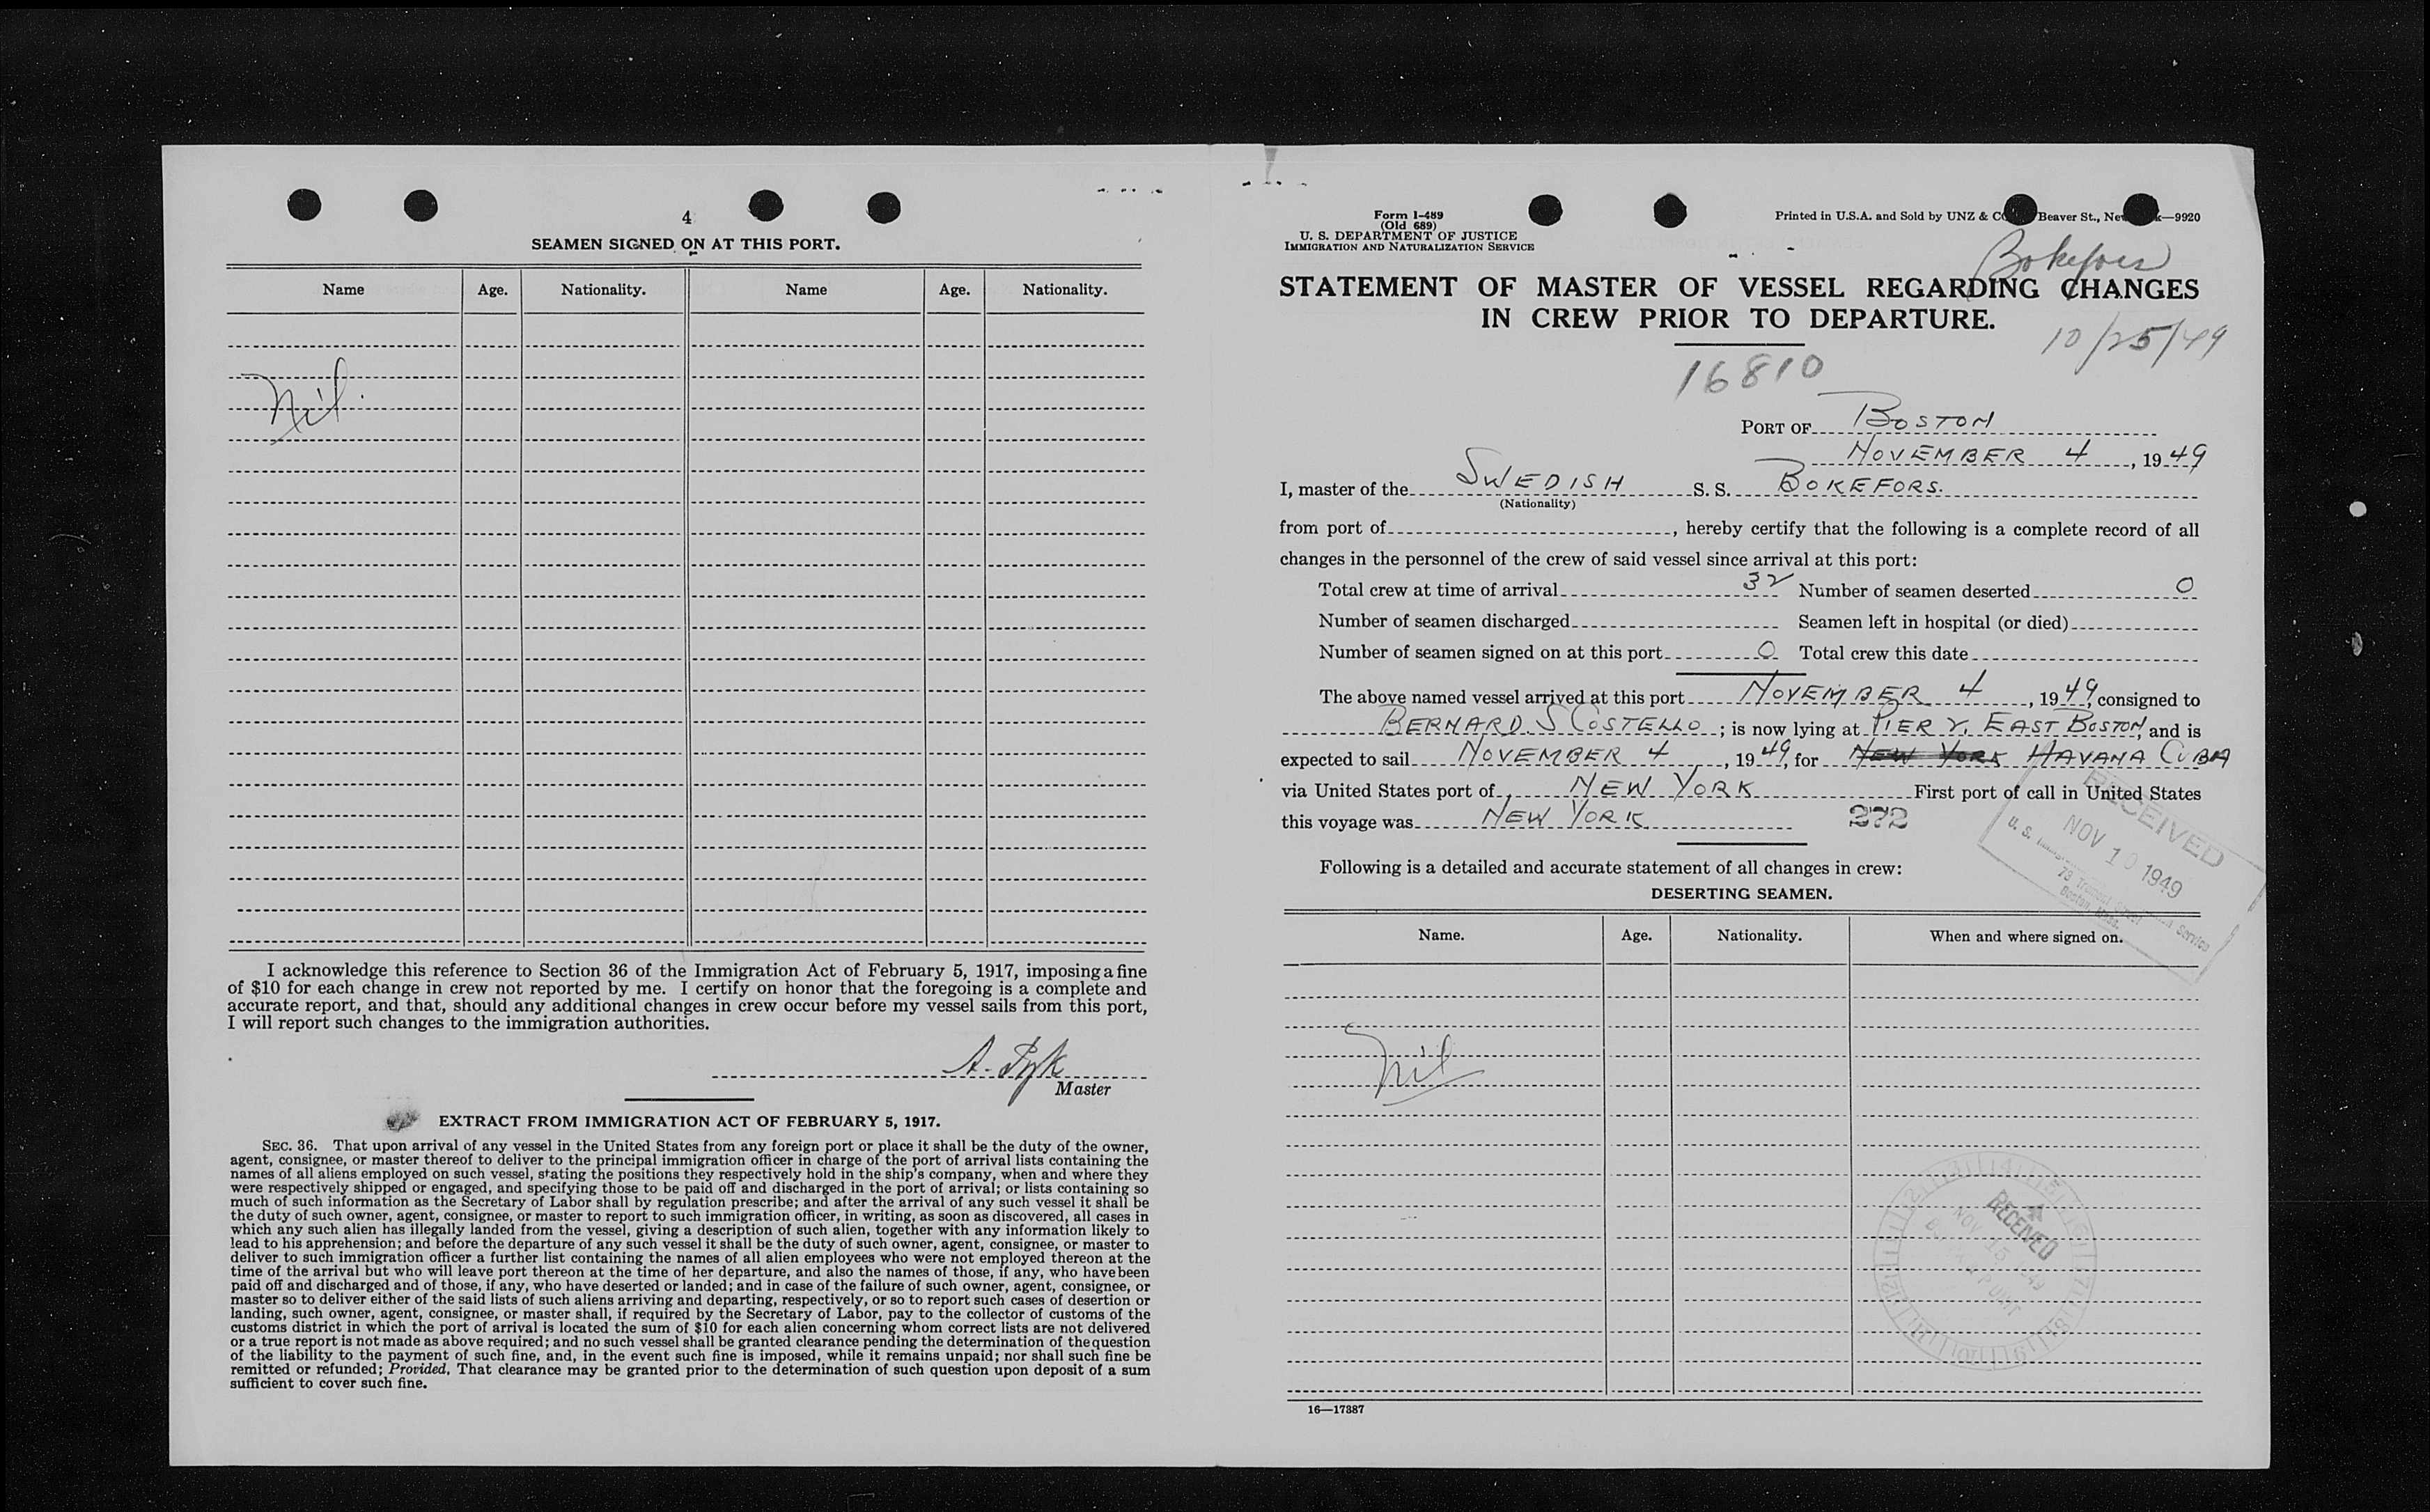 4
SEAMEN SIGNED ON AT THIS PORT.
Name Age. Nationality. Name Age. Nationality.
Nil.
I acknowledge this reference to Section 36 of the Immigration Act of February 5, 1917, imposing a fine
of $10 for each change in crew not reported by me. I certify on honor that the foregoing is a complete and
accurate report, and that, should any additional changes in crew occur before my vessel sails from this port,
I will report such changes to the immigration authorities.
A.
Master
EXTRACT FROM IMMIGRATION ACT OF FEBRUARY 5, 1917.
SEC. 36. That upon arrival of any vessel in the United States from any foreign port or place it shall be the duty of the owner,
agent, consignee, or master thereof to deliver to the principal immigration officer in charge of the port of arrival lists containing the
names of all aliens employed on such vessel, stating the positions they respectively hold in the ship's company, when and where they
were respectively shipped or engaged, and specifying those to be paid off and discharged in the port of arrival; or lists containing so
much of such information as the Secretary of Labor shall by regulation prescribe; and after the arrival of any such vessel it shall be
the duty of such owner, agent, consignee, or master to report to such immigration officer, in writing, as soon as discovered, all cases in
which any such alien has illegally landed from the vessel, giving a description of such alien, together with any information likely to
lead to his apprehension; and before the departure of any such vessel it shall be the duty of such owner, agent, consignee, or master to
deliver to such immigration officer a further list containing the names of all alien employees who were not employed thereon at the
time of the arrival but who will leave port thereon at the time of her departure, and also the names of those, if any, who have been
paid off and discharged and of those, if any, who have deserted or landed; and in case of the failure of such owner, agent, consignee, or
master so to deliver either of the said lists of such aliens arriving and departing, respectively, or so to report such cases of desertion or
landing, such owner, agent, consignee, or master shall, if required by the Secretary of Labor, pay to the collector of customs of the
customs district in which the port of arrival is located the sum of $10 for each alien concerning whom correct lists are not delivered
or a true report is not made as above required; and no such vessel shall be granted clearance pending the determination of the question
of the liability to the payment of such fine, and, in the event such fine is imposed, while it remains unpaid; nor shall such fine be
remitted or refunded; Provided, That clearance may be granted prior to the determination of such question upon deposit of a sum
sufficient to cover such fine.
Form I-489
(Old 689)
U. S. DEPARTMENT OF JUSTICE
IMMIGRATION AND NATURALIZATION SERVICE
Printed in U.S.A. and Sold by UNZ & Beaver St., —9920
Bokefors
STATEMENT OF MASTER OF VESSEL REGARDING CHANGES
IN CREW PRIOR TO DEPARTURE.
10/25/49
16810
PORT OF BOSTON
NOVEMBER 4, 1949
I, master of the SWEDISH S. S. BOKEFORS.
(Nationality)
from port of , hereby certify that the following is a complete record of all
changes in the personnel of the crew of said vessel since arrival at this port:
Total crew at time of arrival 32 Number of seamen deserted 0
Number of seamen discharged Seamen left in hospital (or died)
Number of seamen signed on at this port 0 Total crew this date
The above named vessel arrived at this port NOVEMBER 4, 1949, consigned to
BERNARD S COSTELLO; is now lying at PIER 2, EAST BOSTON, and is
expected to sail NOVEMBER 4, 1949, for NEW YORK HAVANA CUBA
via United States port of NEW YORK First port of call in United States
this voyage was NEW YORK 272
RECEIVED
NOV 10 1949
U. S. Service
Boston, Mass.
Following is a detailed and accurate statement of all changes in crew:
DESERTING SEAMEN.
Name. Age. Nationality. When and where signed on.
nil
RECEIVED
NOV 15
16—17387